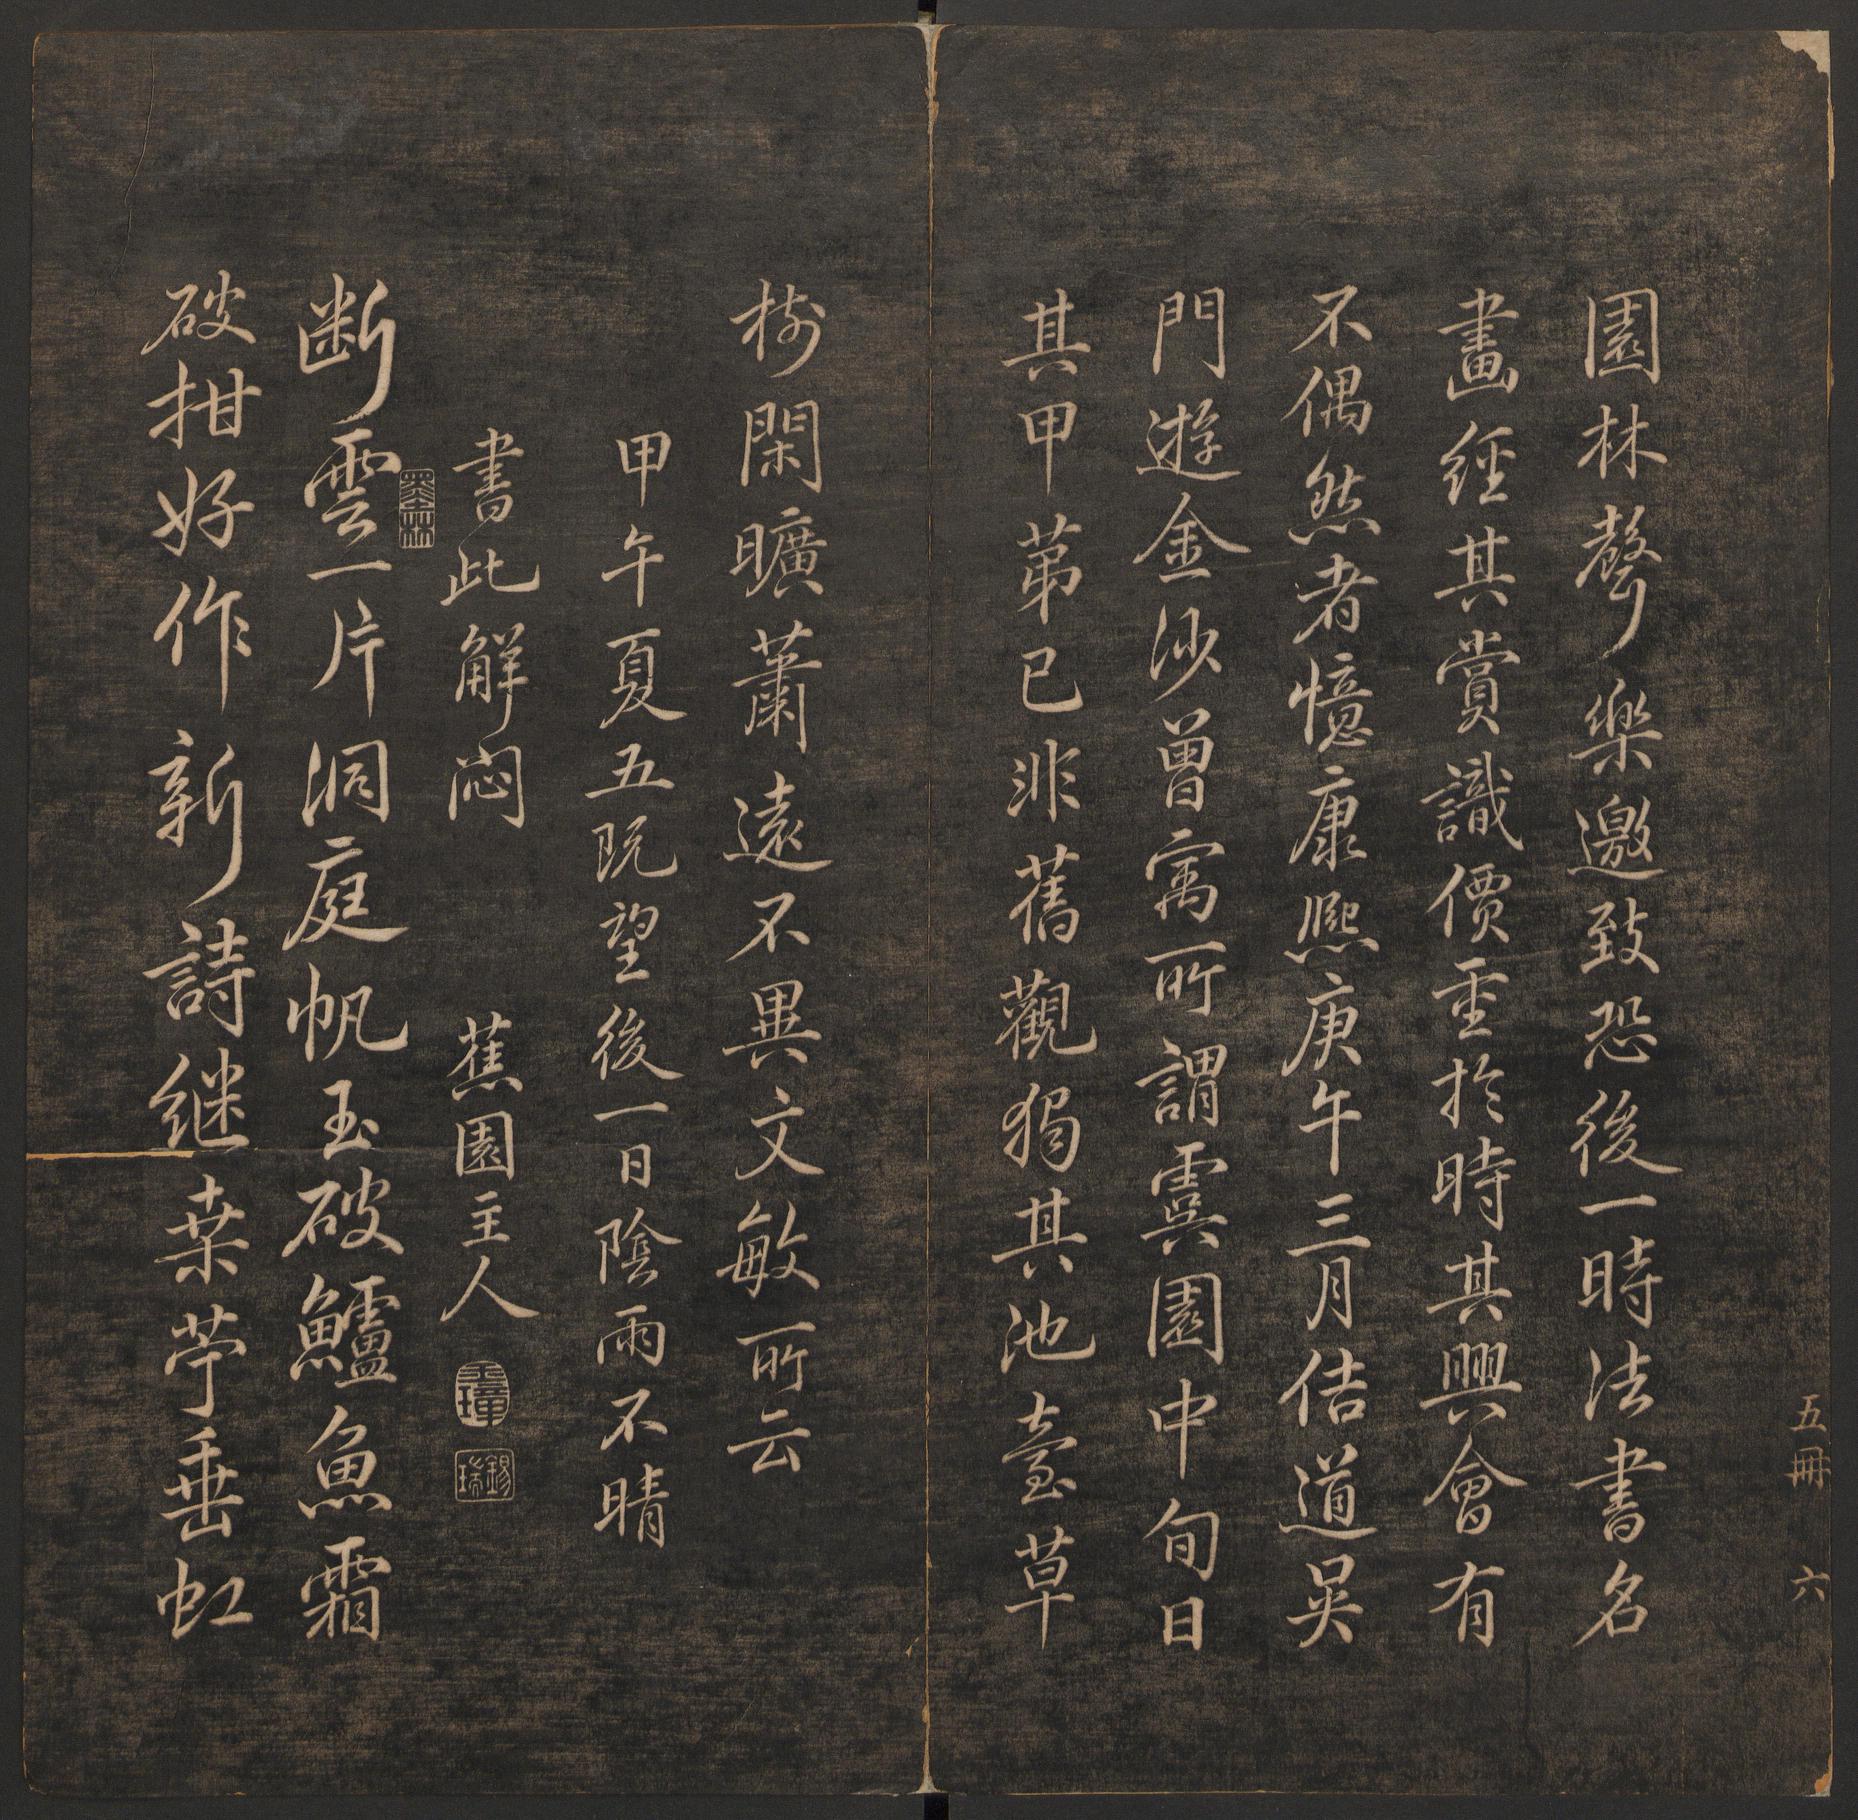 園林聲樂邀致恐後一時法書名
畫經其賞識價重於時其興會有
不偶然者憶康熙庚午三月佶道吳
門遊金沙曾寓所謂雲園中旬日
其甲苐已非舊觀獨其池臺草
樹閑曠蕭遠不異文敏所云
甲午夏五既望後一日陰雨不晴
書此解悶 蕉園主人
墨林
断雲一片洞庭帆玉破鱸魚霜
破柑好作新詩継桒苧垂虹
五冊 六